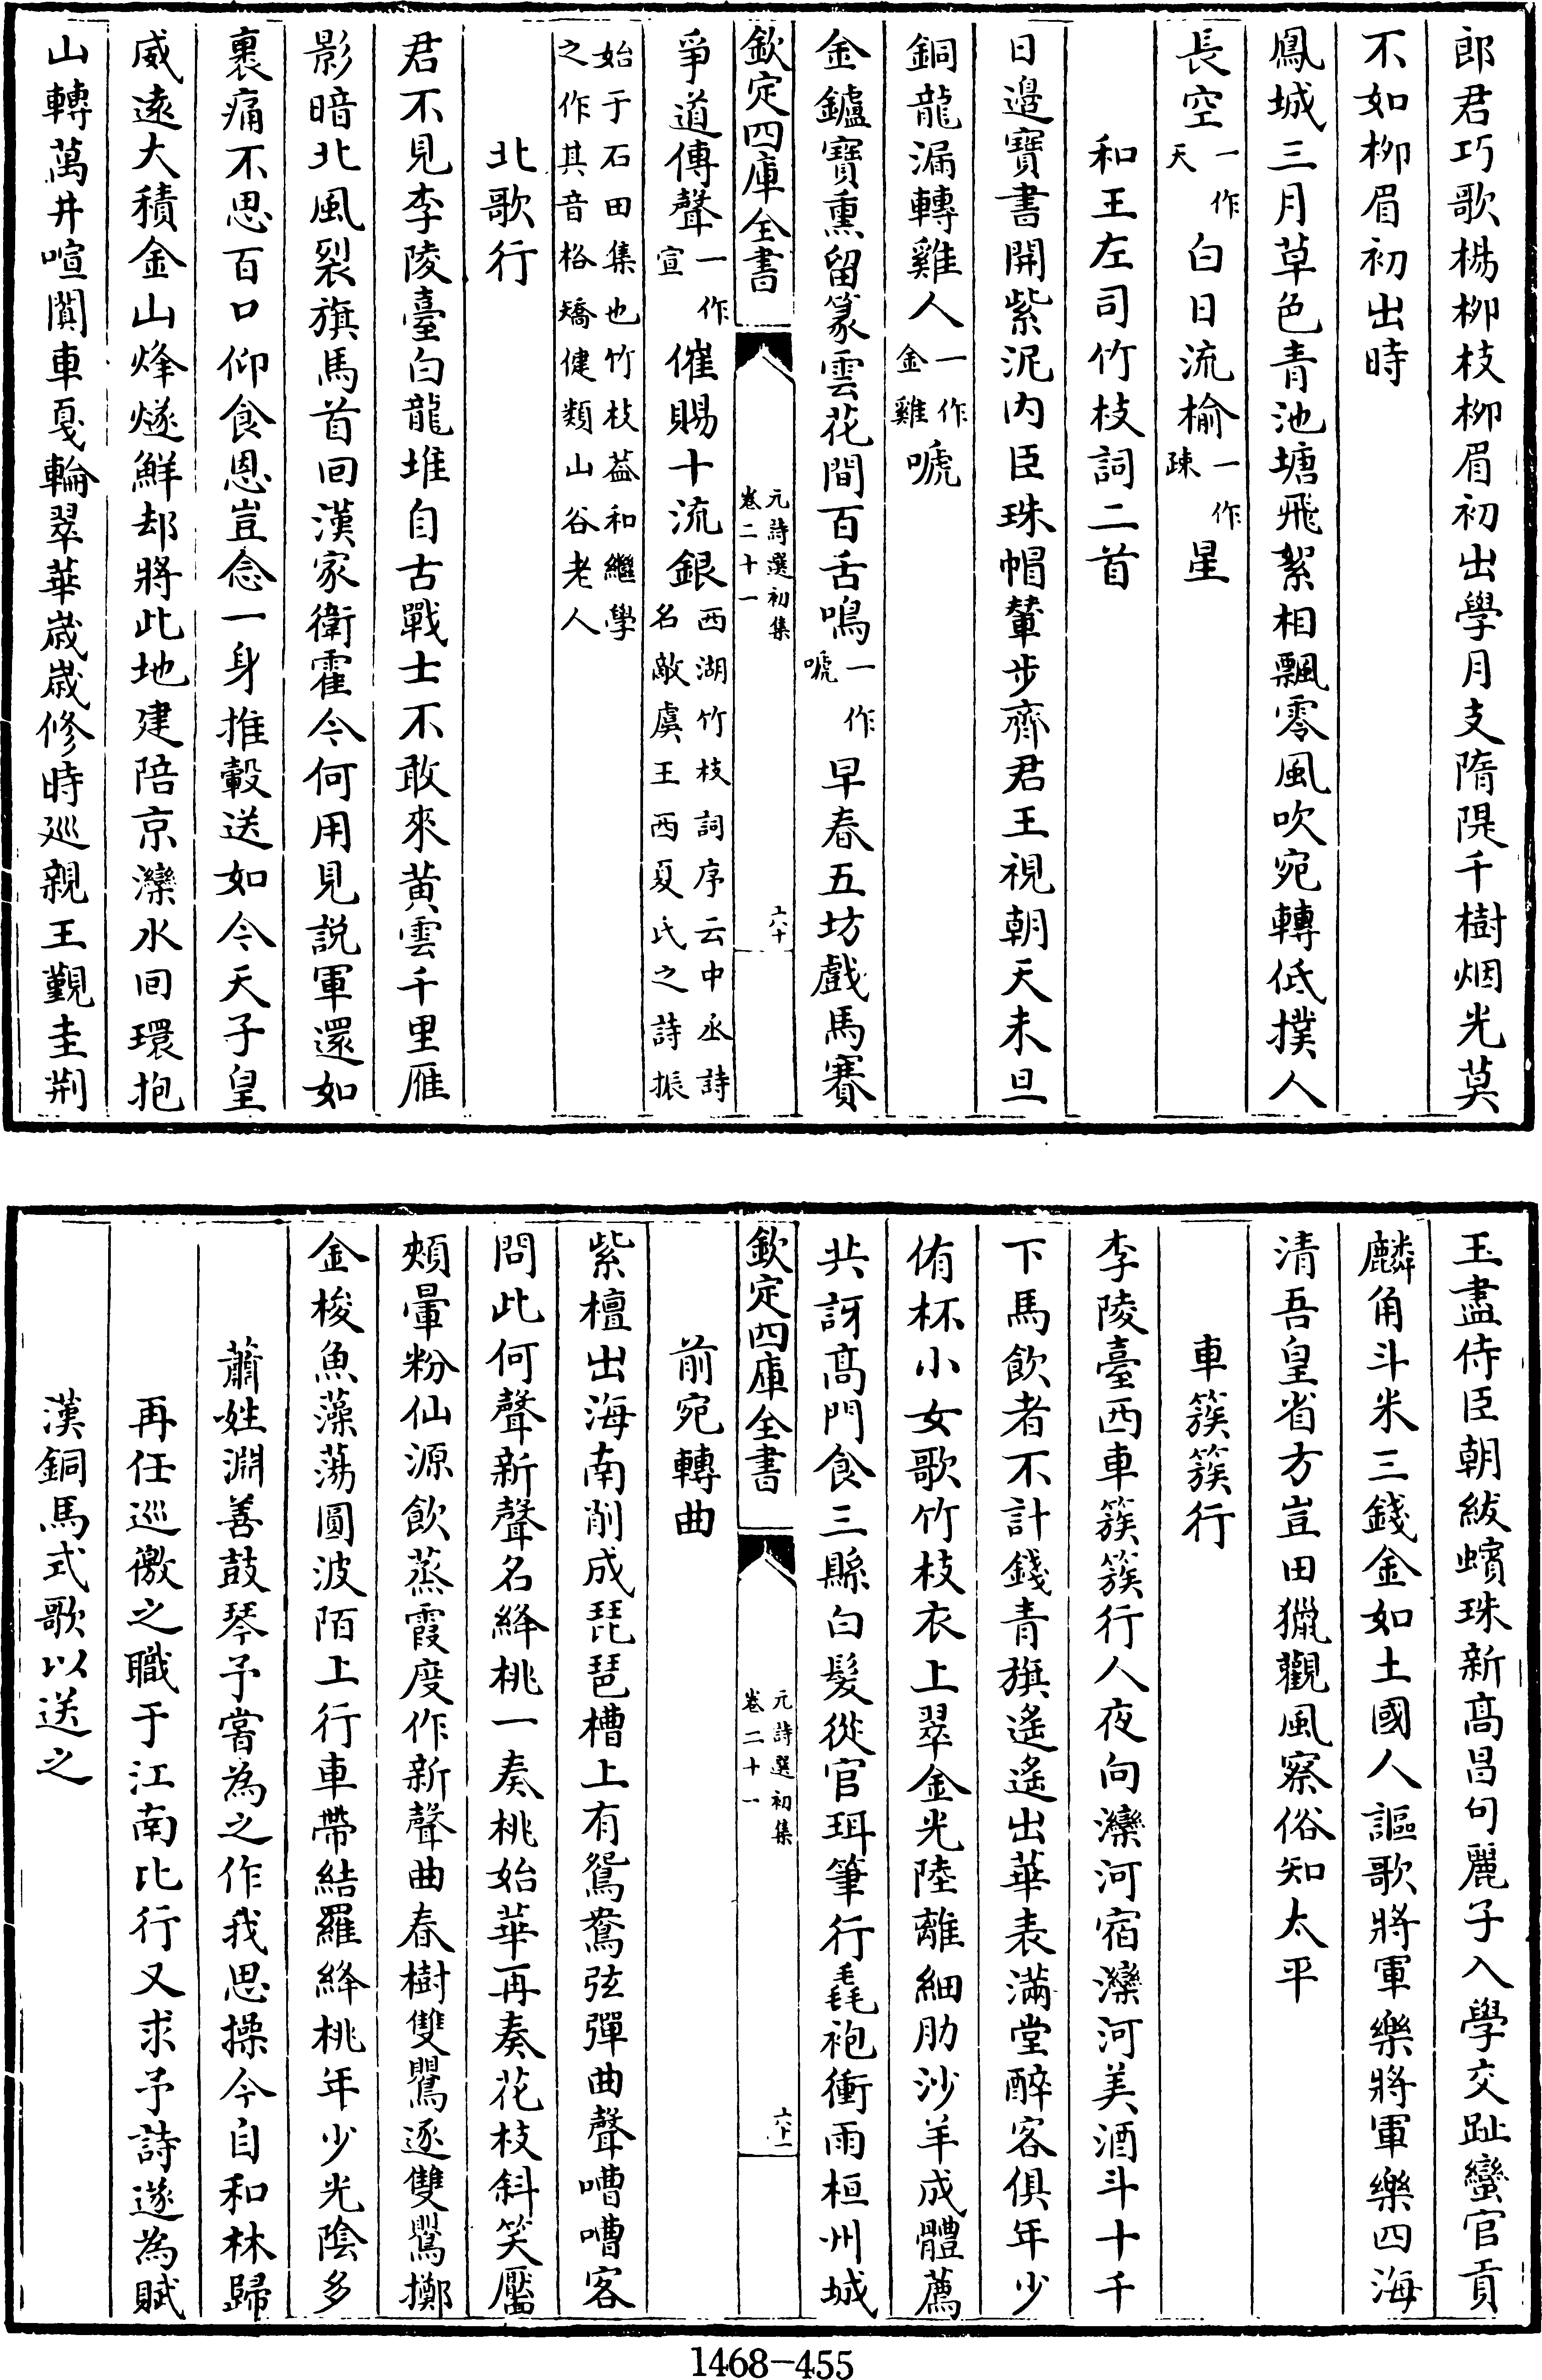 郎君巧歌楊柳枝柳眉初出學月支隋隄千樹烟光莫
不如柳眉初出時
鳳城三月草色青池塘飛絮相飄零風吹宛轉低撲人
長空一作天白日流榆一作疎星
和王左司竹枝詞二首
日邉寳書開紫泥内臣珠帽輦步齊君王視朝天未旦
銅龍漏轉雞人一作金雞唬
金鑪寳熏留篆雲花間百舌鳴一作唬早春五坊戲馬賽
欽定四庫全書
元詩選初集
卷二十一
六十
爭道傳聲一作宣催賜十流銀西湖竹枝詞序云中丞詩名敵虞王西夏氏之詩振
始于石田集也竹枝葢和繼學之作其音格矯健類山谷老人
北歌行
君不見李陵臺白龍堆自古戰士不敢來黄雲千里雁
影暗北風裂旗馬首回漢家衛霍今何用見説軍還如
裹痛不思百口仰食恩豈念一身推轂送如今天子皇
威逺大積金山烽燧鮮却將此地建陪京灤水回環抱
山轉萬井喧闐車戛輪翠華嵗嵗修時廵親王覲圭荆
玉盡侍臣朝紱蠙珠新髙昌句麗子入學交趾蠻官貢
麟角斗米三錢金如土國人謳歌將軍樂將軍樂四海
清吾皇省方豈田獵觀風察俗知太平
車簇簇行
李陵臺西車簇簇行人夜向灤河宿灤河美酒斗十千
下馬飲者不計錢青旗遙遙出華表滿堂醉客俱年少
侑杯小女歌竹枝衣上翠金光陸離細肋沙羊成體薦
共訝髙門食三縣白髮從官珥筆行毳袍衝雨桓州城
欽定四庫全書
元詩選初集
卷二十一
六十一
前宛轉曲
紫檀出海南削成琵琶槽上有鴛鴦弦彈曲聲嘈嘈客
問此何聲新聲名絳桃一奏桃始華再奏花枝斜笑靨
頰暈粉仙源飲蒸霞度作新聲曲春樹雙鸎逐雙鸎擲
金梭魚藻蕩圓波陌上行車帶結羅絳桃年少光陰多
蕭姓淵善鼓琴予嘗為之作我思操今自和林歸
再任巡徼之職于江南比行又求予詩遂為賦
漢銅馬式歌以送之
1468-455